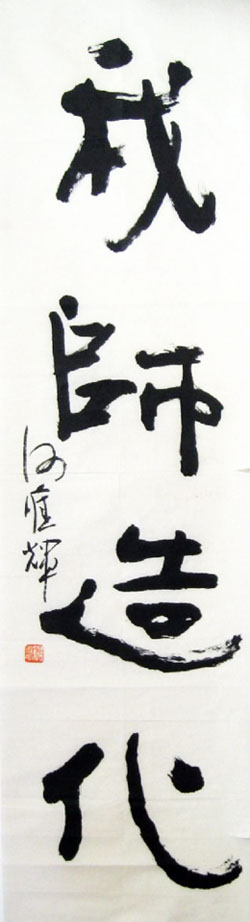 我師造化
何應輝